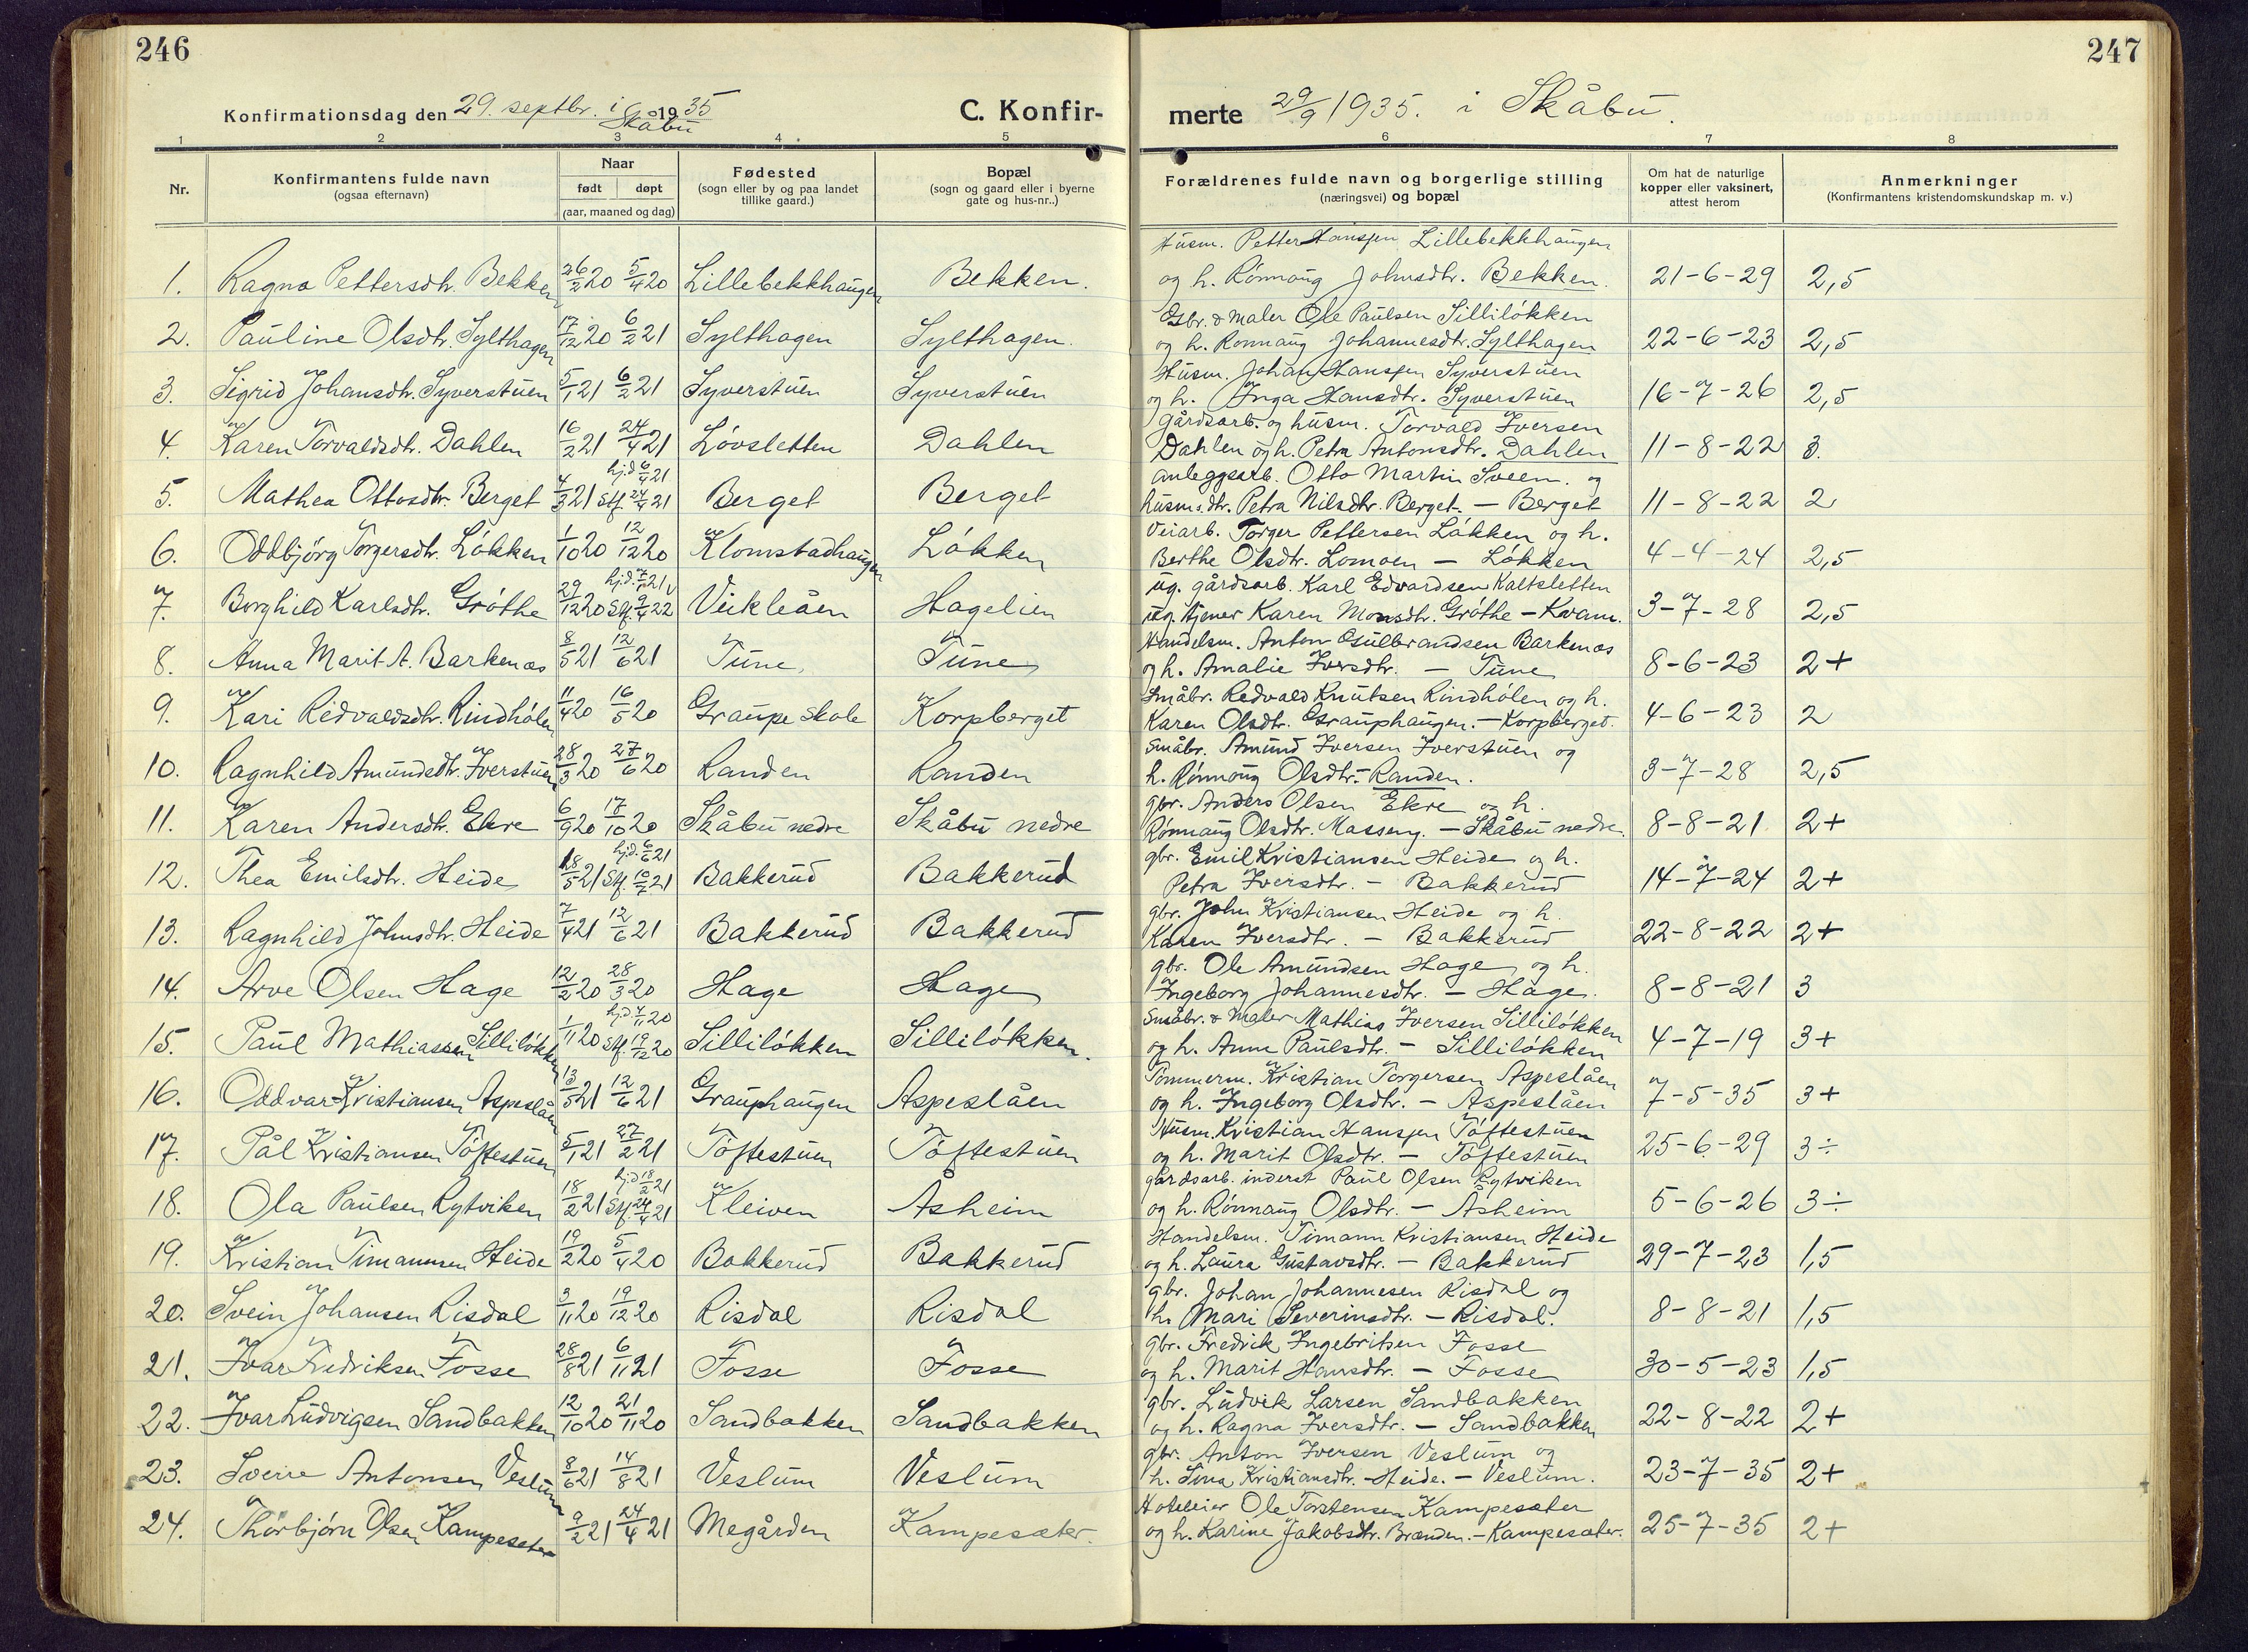 246
Konfirmationsdag den 29. septbr. i Skåbu 1935
C. Konfir-
1 2 3 4 5
Nr.
Konfirmantens fulde navn
(ogsaa efternavn)
Naar
født døpt
(aar, maaned og dag)
Fødested
(sogn eller by og paa landet
tillike gaard.)
Bopæl
(sogn og gaard eller i byerne
gate og hus-nr..)
1. Ragna Pettersdtr. Bekken 26/2 20 5/4 20 Lillebekkhaugen Bekken.
2. Pauline Olsdtr. Sylthagen 17/12 20 6/2 21 Sylthagen Sylthagen.
3. Sigrid Johansdtr. Syverstuen 5/1 21 6/2 21 Syverstuen Syverstuen
4. Karen Torvaldsdtr. Dahlen 16/2 21 24/4 21 Lövsletten Dahlen
5. Mathea Ottosdtr. Berget 4/3 21 hj.d. 6/4 21 Stf. 24/4 21 Berget Berget
6. Oddbjörg Torgersdtr. Lökken 1/10 20 12/12 20 Klomstadhaugen Lökken
7. Borghild Karlsdtr. Gröthe 29/12 20 hj.d. 7/1 21 Stf. 9/4 22 Veikleåen Hagelien
8. Anna Marit A. Barkenæs 8/5 21 12/6 21 Tune Tune
9. Kari Redvaldsdtr. Rindhölen 11/4 20 16/5 20 Graupe skole Korpberget
10. Ragnhild Amundsdtr. Iverstuen 28/3 20 27/6 20 Randen Randen
11. Karen Andersdtr. Ekre 6/9 20 17/10 20 Skåbu nedre Skåbu nedre
12. Thea Emilsdtr. Heide 28/5 21 hj.d. 6/6 21 Stf. 10/7 21 Bakkerud Bakkerud
13. Ragnhild Johnsdtr. Heide 7/4 21 12/6 21 Bakkerud Bakkerud
14. Arve Olsen Hage 12/2 20 28/3 20 Hage Hage
15. Paul Mathiassen Sillilökken 1/11 20 hj.d. 7/11 20 Stf. 19/12 20 Sillilökken Sillilökken.
16. Oddvar Kristiansen Aspeslåen 13/5 21 12/6 21 Grauphaugen Aspeslåen
17. Pål Kristiansen Töftestuen 5/1 21 27/2 21 Töftestuen Töftestuen
18. Ola Paulsen Rytviken 18/2 21 hj.d. 18/2 21 Stf. 24/4 21 Kleiven Åsheim
19. Kristian Timannsen Heide 19/2 20 5/4 20 Bakkerud Bakkerud
20. Svein Johansen Risdal 3/11 20 19/12 20 Risdal Risdal
21. Ivar Fredriksen Fosse 28/8 21 6/11 21 Fosse Fosse
22. Ivar Ludvigsen Sandbakken 12/10 20 21/11 20 Sandbakken Sandbakken
23. Sverre Antonsen Veslum 8/6 21 14/8 21 Veslum Veslum
24. Thorbjörn Olsen Kampesæter 9/2 21 24/4 21 Megården Kampesæter.
247
merte 29/9 1935. i Skåbu.
6 7 8
Forældrenes fulde navn og borgerlige stilling
(næringsvei) og bopæl
Om hat de naturlige
kopper eller vaksinert,
attest herom
Anmerkninger
(Konfirmantens kristendomskundskap m. v.)
Husm. Petter Hansen Lillebekkhaugen
og h. Rönnaug Johnsdtr. Bekken. 21-6-29 2,5
Gbr. & maler Ole Paulsen Sillilökken
og h. Rönnaug Johannesdtr. Sylthagen 22-6-23 2,5
Husm. Johan Hansen Syverstuen
og h. Inga Hansdtr. Syverstuen 16-7-26 2,5
Gårdsarb. og husm. Torvald Iversen
Dahlen og h. Petra Antonsdtr. Dahlen 11-8-22 3.
Anleggsarb. Otto Martin Sveen. og
husm.dtr. Petra Nilsdtr. Berget. - Berget 11-8-22 2
Veiarb. Torger Pettersen Lökken og h.
Berthe Olsdtr. Lomoen - Lökken 4-4-24 2,5
ug. gårdsarb. Karl Edvardsen Kaltsletten
ug. tjener Karen Monsdtr. Gröthe - Kvam. 3-7-28 2,5
Handelsm. Anton Gulbrandsen Barkenæs
og h. Amalie Iversdtr. - Tune 8-6-23 2+
Småbr. Redvald Knutsen Rindhölen og h.
Karen Olsdtr. Grauphaugen. - Korpberget. 4-6-23 2
Småbr. Amund Iversen Iverstuen og
h. Rönnaug Olsdtr. - Randen. 3-7-28 2,5
gbr. Anders Olsen Ekre og h.
Rönnaug Olsdtr. Masseng. - Skåbu nedre. 8-8-21 2+
gbr. Emil Kristiansen Heide og h.
Petra Iversdtr. - Bakkerud 14-7-24 2+
gbr. John Kristiansen Heide og h.
Karen Iversdtr. - Bakkerud 22-8-22 2+
gbr. Ole Amundsen Hage og h.
Ingeborg Johannesdtr. - Hage. 8-8-21 3
Småbr. & maler Mathias Iversen Sillilökken
og h. Anne Paulsdtr. - Sillilökken 4-7-19 3+
Tömmerm. Kristian Torgersen Aspeslåen
og h. Ingeborg Olsdtr. - Aspeslåen 7-5-35 3+
Husm. Kristian Hansen Töftestuen
og h. Marit Olsdtr. - Töftestuen 25-6-29 3÷
Gårdsarb. inderst Paul Olsen Rytviken
og h. Rönnaug Olsdtr. - Åsheim 5-6-26 3÷
Handelsm. Timann Kristiansen Heide
og h. Laura Gustavsdtr. - Bakkerud 29-7-23 1,5
gbr. Johan Johannesen Risdal og
h. Mari Severinsdtr. - Risdal. 8-8-21 1,5
gbr. Fredrik Ingebritsen Fosse
og h. Marit Hansdtr. - Fosse 30-5-23 1,5
gbr. Ludvik Larsen Sandbakken
og h. Ragna Iversdtr. - Sandbakken 22-8-22 2+
gbr. Anton Iversen Veslum og
h. Sina Kristiansdtr. - Heide. - Veslum. 23-7-35 2+
Hoteleier Ole Torstensen Kampesæter
og h. Karine Jakobsdtr. Brænden. - Kampesæter. 25-7-35 2+